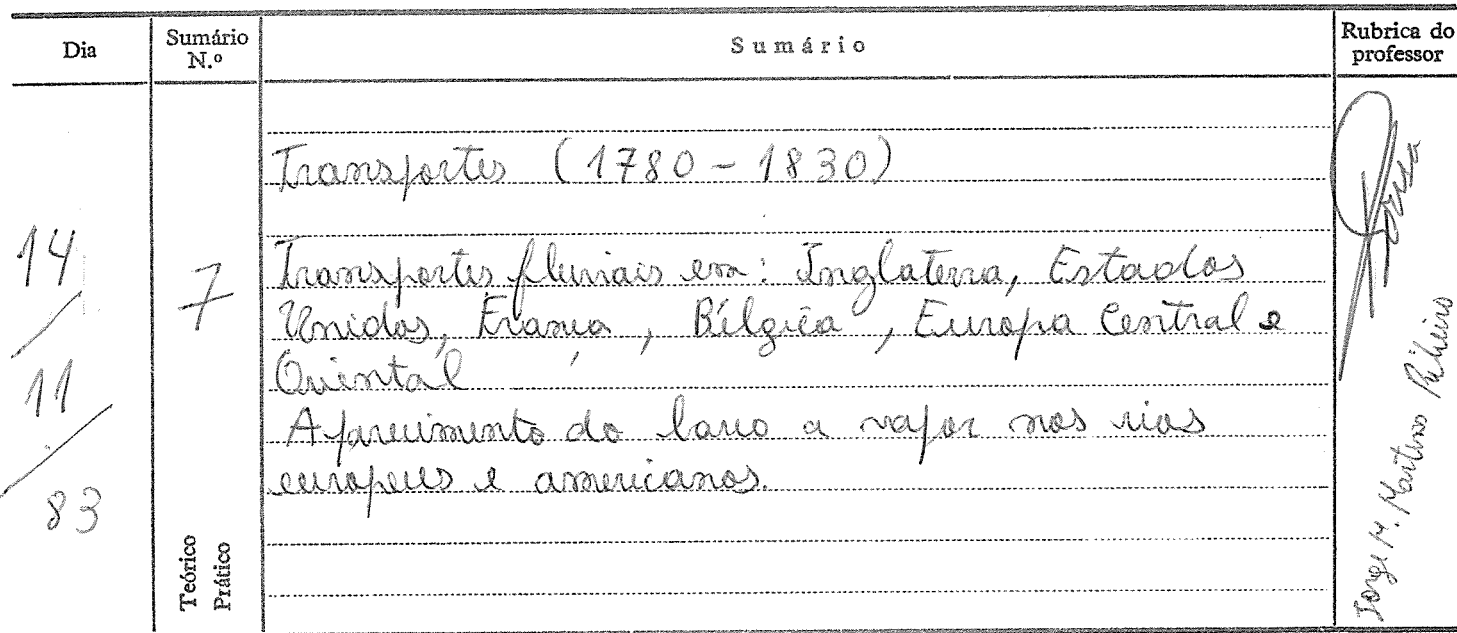 Dia
Sumário
N.º
Sumário
Rubrica do
professor
Transportes (1780 - 1830)
14
/
11
/
83
7
Transportes fluviais em: Inglaterra, Estados
Unidos, França, Bélgica, Europa Central e
Oriental
Aparecimento do barco a vapor nos rios
europeus e americanos.
Teórico
Prático
Jorge M. Martins Ribeiro